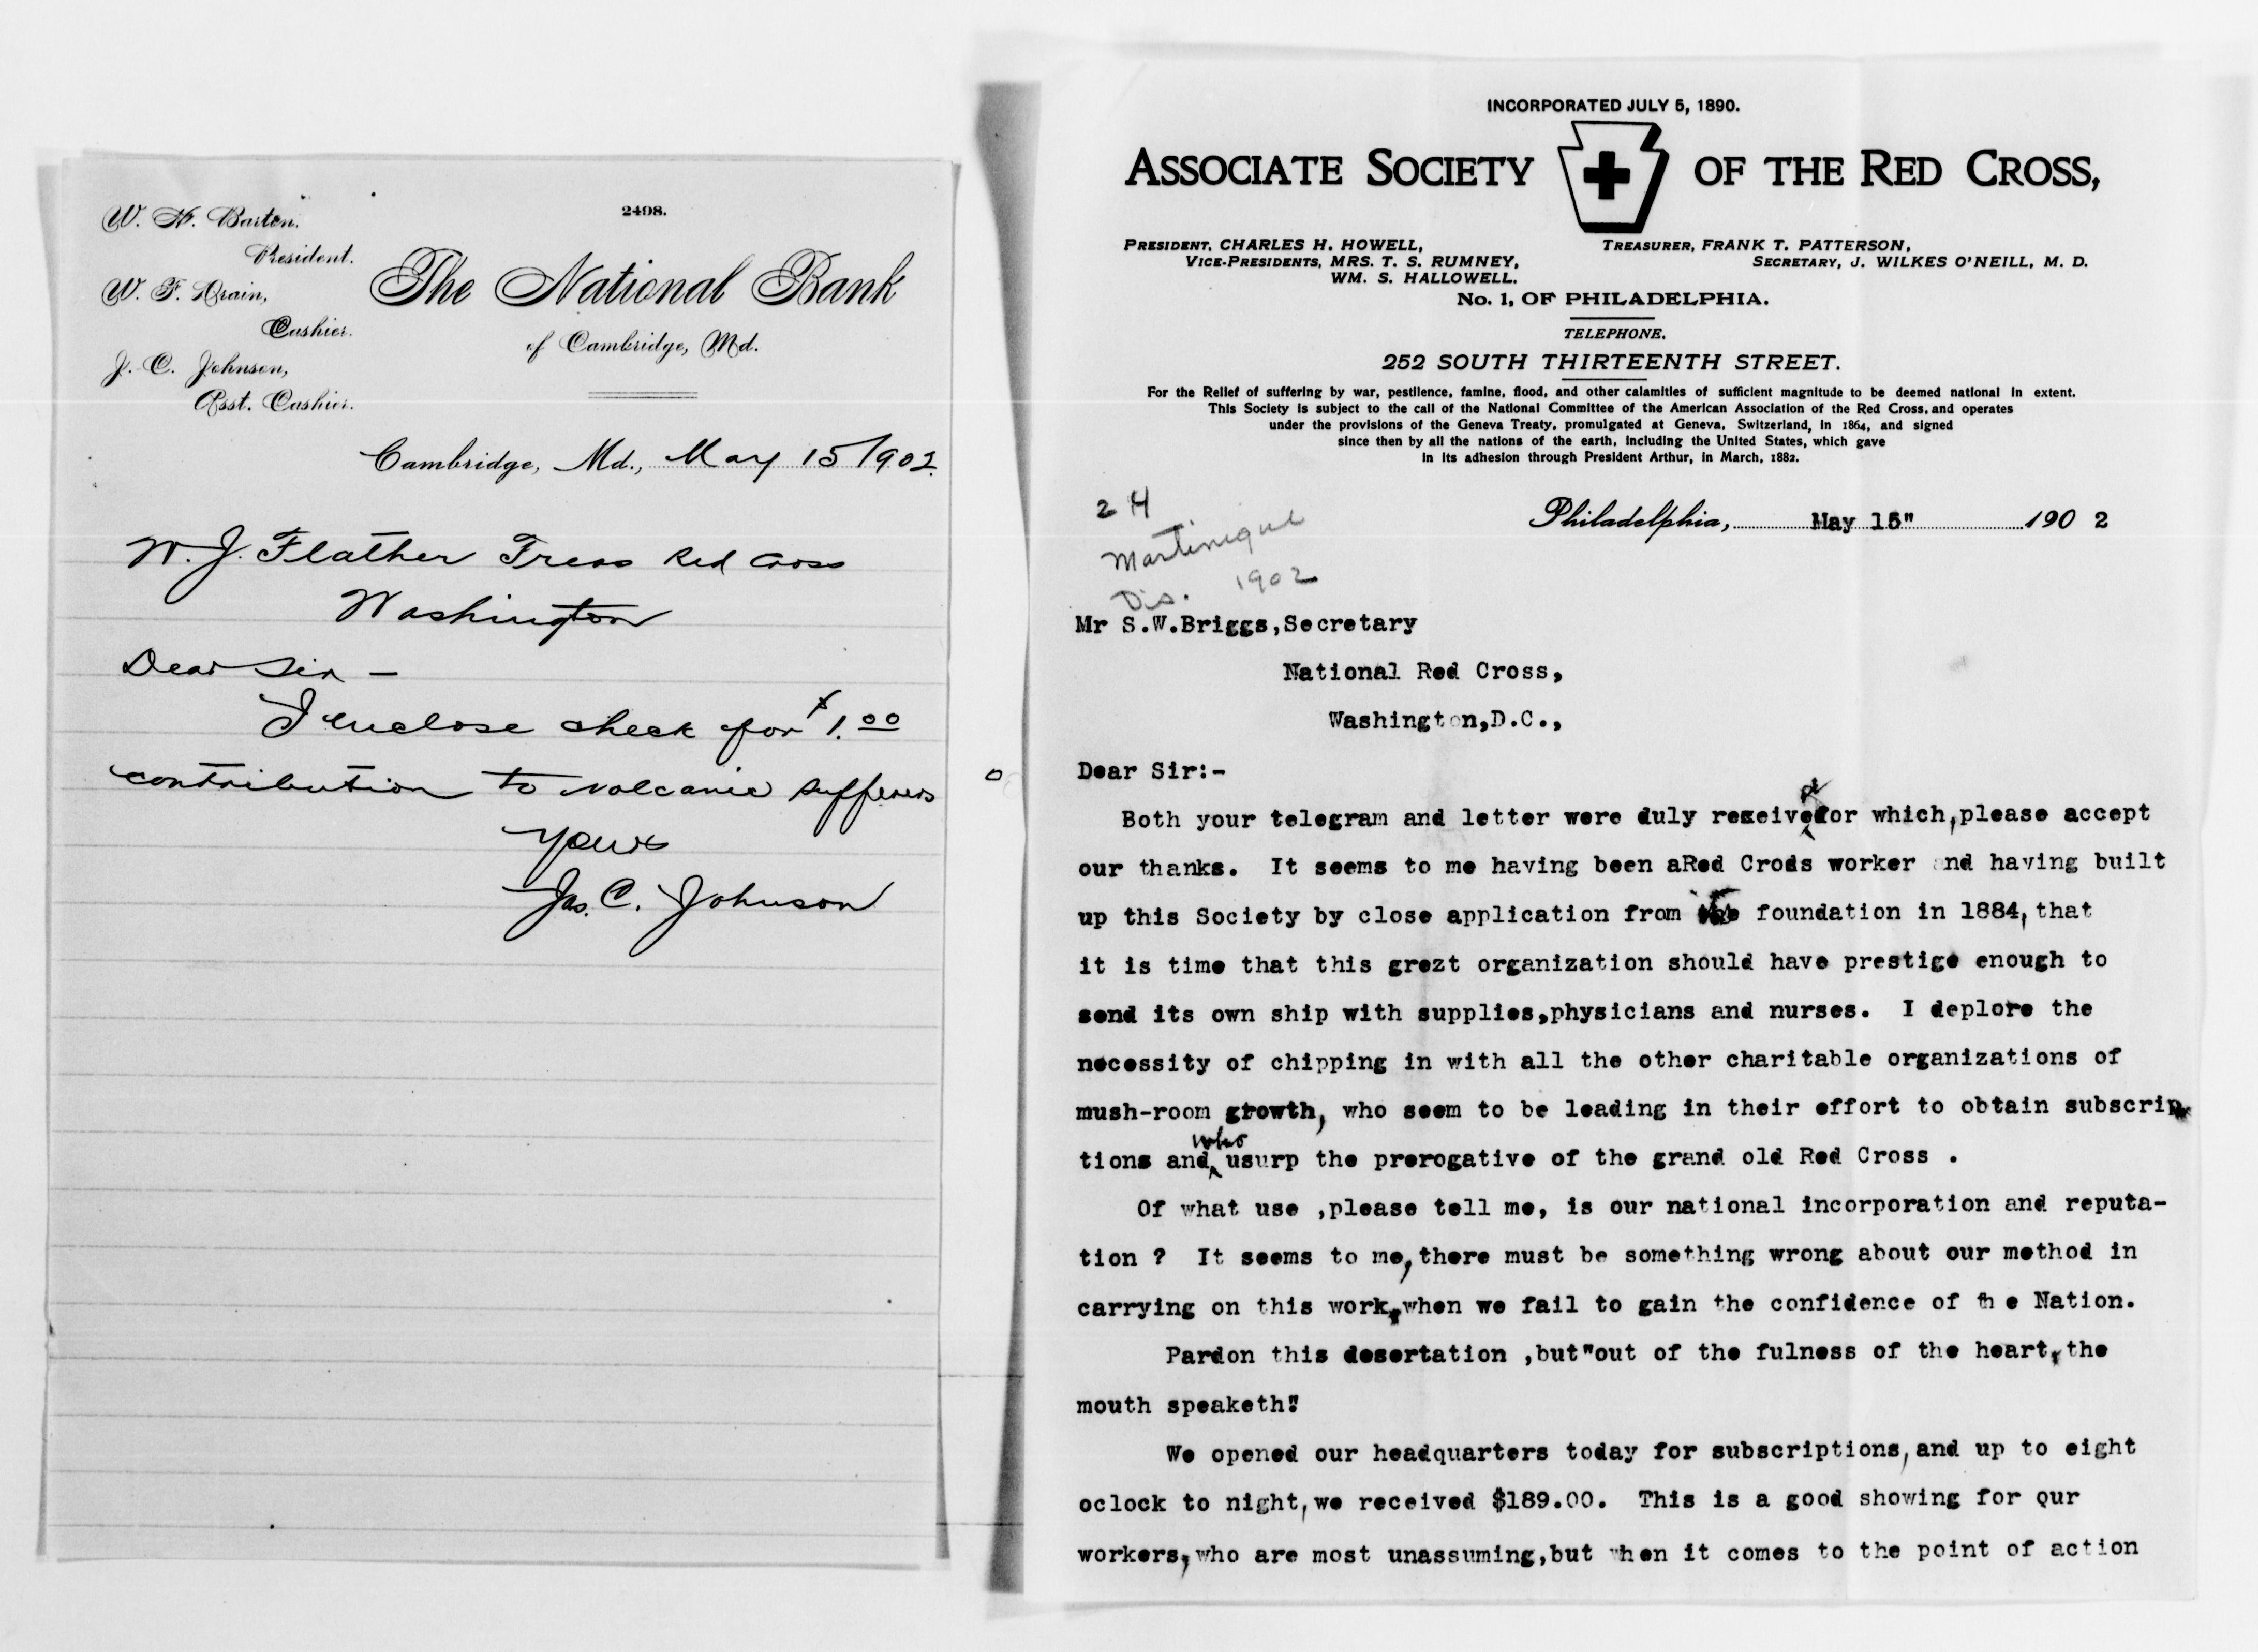 W. H. Barton,
President.
W. F. Drain,
Cashier.
J. C. Johnson,
Asst. Cashier.
2498.
The National Bank
of Cambridge, Md.
Cambridge, Md., May 15 1902.
W. J. Flather Treas Red Cross
Washington
Dear Sir —
I enclose check for $1.00
contribution to volcanic sufferers
Yours
Jas. C. Johnson
INCORPORATED JULY 5, 1890.
ASSOCIATE SOCIETY OF THE RED CROSS,
PRESIDENT, CHARLES H. HOWELL,
VICE-PRESIDENTS, MRS. T. S. RUMNEY,
WM. S. HALLOWELL.
TREASURER, FRANK T. PATTERSON,
SECRETARY, J. WILKES O'NEILL, M. D.
No. 1, OF PHILADELPHIA.
TELEPHONE.
252 SOUTH THIRTEENTH STREET.
For the Relief of suffering by war, pestilence, famine, flood, and other calamities of sufficient magnitude to be deemed national in extent.
This Society is subject to the call of the National Committee of the American Association of the Red Cross, and operates
under the provisions of the Geneva Treaty, promulgated at Geneva, Switzerland, in 1864, and signed
since then by all the nations of the earth, including the United States, which gave
in its adhesion through President Arthur, in March, 1882.
Philadelphia, May 15" 190 2
24
Martinique
Dis. 1902
Mr S.W.Briggs,Secretary
National Red Cross,
Washington,D.C.,
Dear Sir:-
Both your telegram and letter were duly rexeived for which,please accept
our thanks. It seems to me having been aRed Crods worker and having built
up this Society by close application from its foundation in 1884, that
it is time that this grezt organization should have prestige enough to
send its own ship with supplies,physicians and nurses. I deplore the
necessity of chipping in with all the other charitable organizations of
mush-room growth, who seem to be leading in their effort to obtain subscrip-
tions and who usurp the prerogative of the grand old Red Cross .
Of what use ,please tell me, is our national incorporation and reputa-
tion ? It seems to me, there must be something wrong about our method in
carrying on this work, when we fail to gain the confidence of th e Nation.
Pardon this desertation ,but"out of the fulness of the heart, the
mouth speaketh".
We opened our headquarters today for subscriptions, and up to eight
oclock to night, we received $189.00. This is a good showing for our
workers, who are most unassuming,but when it comes to the point of action